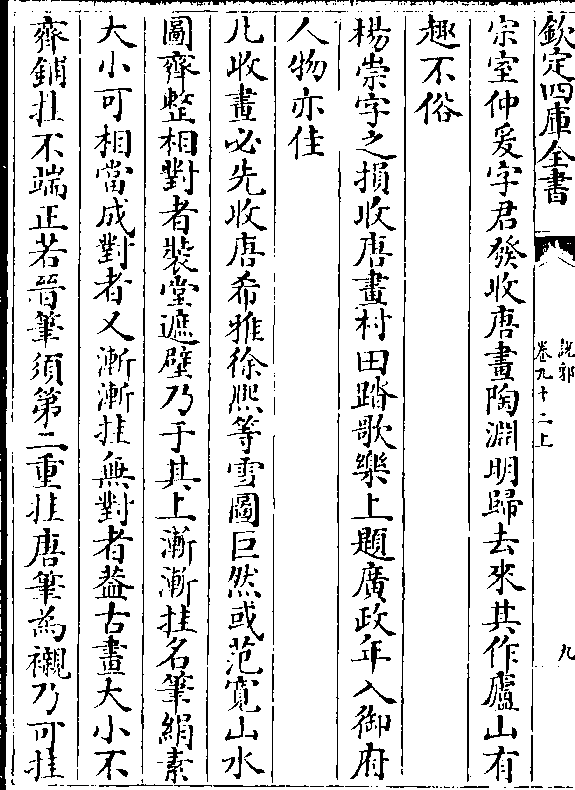 欽定四庫全書
說郛
卷九十二上
九
宗室仲爰字君發收唐畫陶淵明歸去來其作廬山有
趣不俗
楊崇字之損收唐畫村田踏歌樂上題廣政年入御府
人物亦佳
凡收畫必先收唐希雅徐熙等雪圖巨然或范寛山水
圖齊整相對者裝堂遮壁乃于其上漸漸挂名筆絹素
大小可相當成對者又漸漸挂無對者葢古畫大小不
齊鋪挂不端正若晉筆須第二重挂唐筆為襯乃可挂